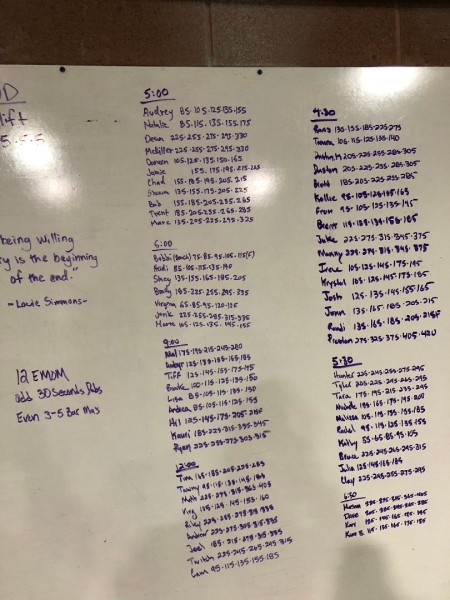 OD
lift
5.5.5
being willing
y is the beginning
of the end."
-Louie Simmons-
12 EMOM
odd 30 Seconds
Even 3-5 Bar Mus
5:00
Audrey 85.105.125.135.155
Natalie 85.115.135.155.175
Dean 225.255.275.295.330
McKiller 225.255.275.295.330
105.125.135.150.165
Jamie 155.175.195.215.225
Chad 155.185.195.205.215
Shawn 135.155.175.205.225
Bob 155.185.205.235.265
Trent 185.205.235.265.285
Marc 135.205.225.295.325
6:00
Bobbi 75.85.95.105.115(F)
Heidi 85.105.115.135.140
Stacy 135.155.165.185.205
Brady 185.225.255.295.335
Virginia 65.85.95.120.105
225.255.285.315.335
115.125.135.145.155
9:00
Mal 175.195.215.245.280
125.155.165.185
Tiff 125.145.155.175.195
Brooke 100.115.125.135.150
Lisa 85.105.115.135.150
Andrea 85.105.115.125.155
125.145.175.205
Kauri 185.225.315.335.345
Ryan 225.255.275.303.315
12:00
Tina 165.185.205.225.255
Tawny 95.115.135.145.155
Matt
King 105.125.145.155.160
Riley
Andrew 225.275.305.315.335
Josh
Twitch 225.245.265.295.315
Cam 95.115.135.155.185
4:30
135.155.185.225.275
105.115.125.135.140
205.225.255.285.305
Dustin 205.225.255.285.305
Brett 185.205.225.255.285
Kallie 95.105.125.155.165
Fran 95.105.125.135.145
Brent 115.135.155.185
Jake 225.275.315.345.375
Manny 225.275.315.345.375
Irene 105.125.145.175.195
Krystal 105.125.145.175.185
Josh 125.135.145.155.165
Jenn 135.165.185.205.215
Randi 135.165.185.205.215F
Preston 275.325.375.405.420
5:30
Hunter 225.245.255.275.295
Tyler 205.225.245.265.295
Tara 175.195.215.235.245
Michelle 145.165.175.195.200
Melissa 105.115.135.155.185
Rachel 95.115.125.135.155
Kathy 55.65.85.95.105
Bruce 225.245.265.295.315
Julia 125.145.165.185
225.245.255.275.295
6:30
Mason
Dave
Kari